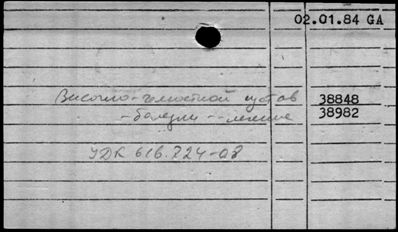 02.01.84 GA
Височно-челюстной сустав 38848
-болезни--лечение 38982
УДК 616.724-08